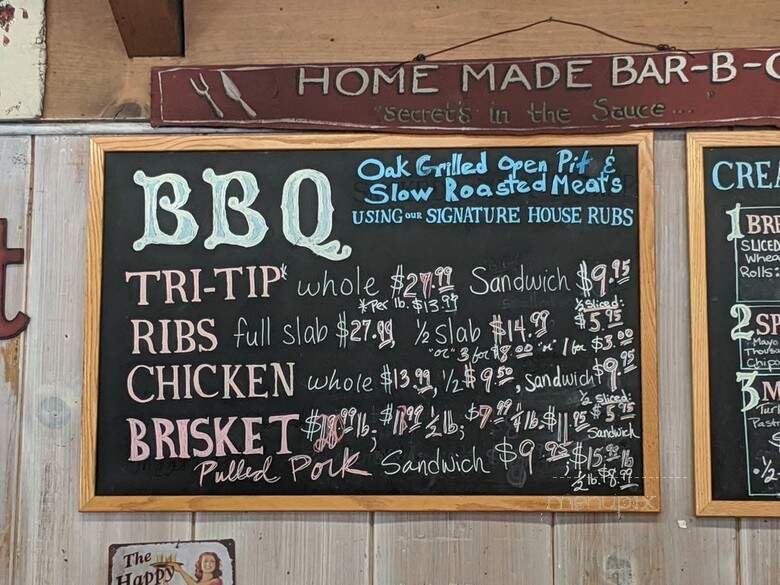 HOME MADE BAR-B-
"Secret's in the Sauce....
BBQ
Oak Grilled Open Pit &
Slow Roasted Meat's
USING OUR SIGNATURE HOUSE RUBS
TRI-TIP* whole $27.99 Sandwich $9.95
*Per lb. $13.99
½ Sliced:
$5.95
RIBS full slab $27.99 ½ slab $14.99
"or" 3 for $8.00 "or" 1 for $3.00
CHICKEN whole $13.99, 1/2 $9.50, Sandwich $9.95
½ Sliced:
$5.95
BRISKET lb; ½ lb; $7.99 ¼ lb. $11.95
Sandwich
Pulled Pork Sandwich $9.95; $15.99 lb
½ lb. $8.99
CREA
1 BRE
SLICED
Whea
Rolls:
2 SP
Mayo
Thousa
Chipo
3 M
Tur
Pastr
$
•½
t
The
Happy
menupix